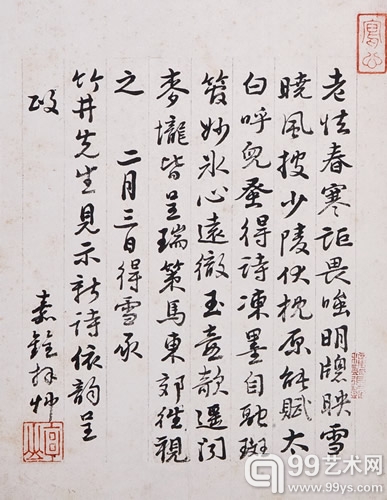 老怯春寒詎畏嗤明牕映雪
曉風披少陵伏枕原能賦太
白呼兒蚤得詩凍墨自融斑
管妙冰心遠徹玉壺欹遥聞
麥壠皆呈瑞策馬東郊往視
之 二月三日得雪承
竹井先生見示新詩依韵呈
政
嘉銓拜艸
99艺术网
www.99ys.com